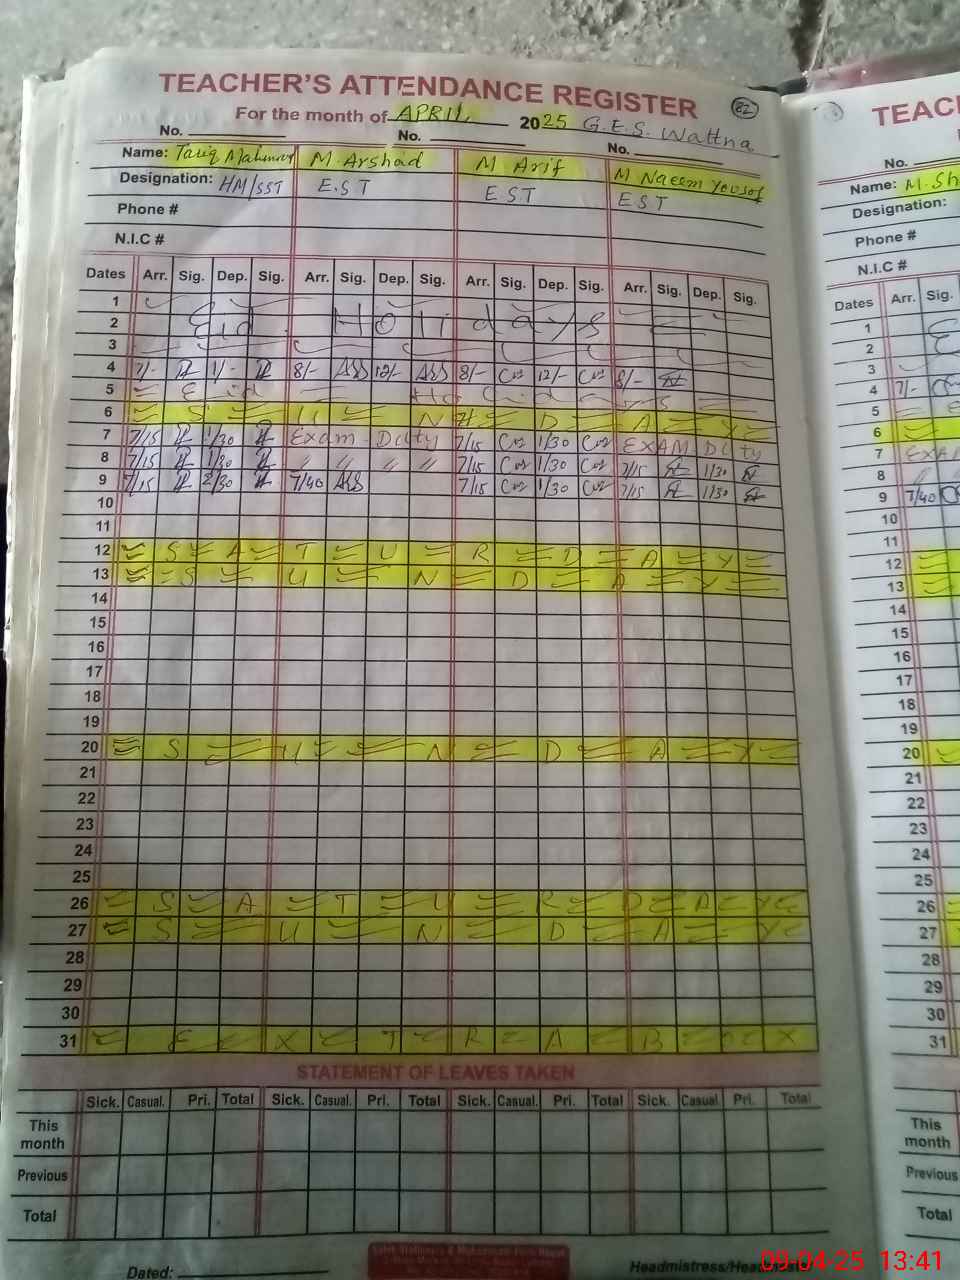 TEACHER'S ATTENDANCE REGISTER
82
For the month of APRIL 2025 G.E.S. Wattna
No. No. No.
Name: Tariq Mahmood M. Arshad M Arif M Naeem Yousof
Designation: HM/SST E.S.T E.S.T E S T
Phone #
N.I.C #
Dates Arr. Sig. Dep. Sig. Arr. Sig. Dep. Sig. Arr. Sig. Dep. Sig. Arr. Sig. Dep. Sig.
1
2 Eid Holidays
3
4 7/- 1/- 8/- 12/- 8/- 12/- 8/-
5 Eid Holidays
6 S U N D A Y
7 7/15 1/30 Exam - Duty 7/15 1/30 EXAM Duty
8 7/15 1/30 〃 〃 〃 〃 7/15 1/30 7/15 1/30
9 7/15 2/30 7/40 7/15 1/30 7/15 1/30
10
11
12 S A T U R D A Y
13 S U N D A Y
14
15
16
17
18
19
20 S U N D A Y
21
22
23
24
25
26 S A T U R D A Y
27 S U N D A Y
28
29
30
31 E X T R A B O X
STATEMENT OF LEAVES TAKEN
Sick. Casual. Pri. Total Sick. Casual. Pri. Total Sick. Casual. Pri. Total Sick. Casual Pri. Total
This month
Previous
Total
Dated: Headmistress/
TEAC
No.
Name: M. Sh
Designation:
Phone #
N.I.C #
Dates Arr. Sig.
1
2
3
4 7/-
5
6
7
8
9 7/40
10
11
12
13
14
15
16
17
18
19
20
21
22
23
24
25
26
27
28
29
30
31
This month
Previous
Total
09-04-25 13:41